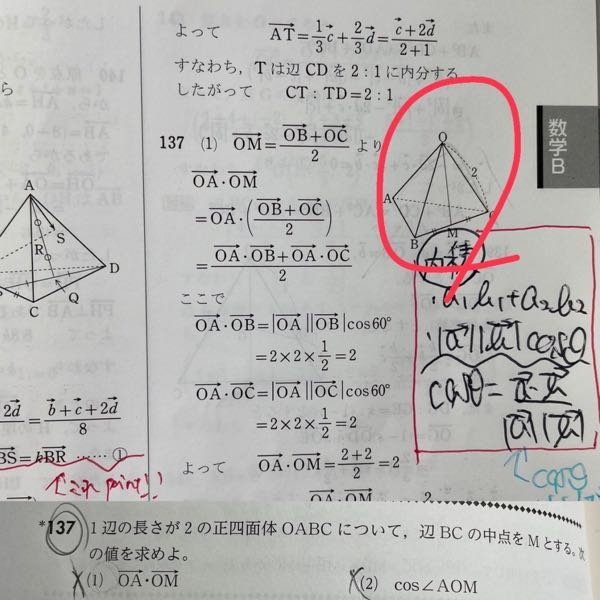 よって AT=1/3 c+2/3 d=(c+2d)/(2+1)
すなわち,Tは辺CDを2:1に内分する.
したがって CT:TD=2:1
数学B
137 (1) OM=(OB+OC)/2 より
OA・OM
=OA・((OB+OC)/2)
=(OA・OB+OA・OC)/2
ここで
OA・OB=|OA||OB|cos60°
=2×2×1/2=2
OA・OC=|OA||OC|cos60°
=2×2×1/2=2
よって OA・OM=(2+2)/2=2
O
2
A
B
M
C
A
S
R
D
Q
C
=(b+c+2d)/8
BS=kBR ……①
これ point!!
内積
cosθ
cosθ
*137 1辺の長さが2の正四面体OABCについて,辺BCの中点をMとする。次
の値を求めよ。
(1) OA・OM (2) cos∠AOM